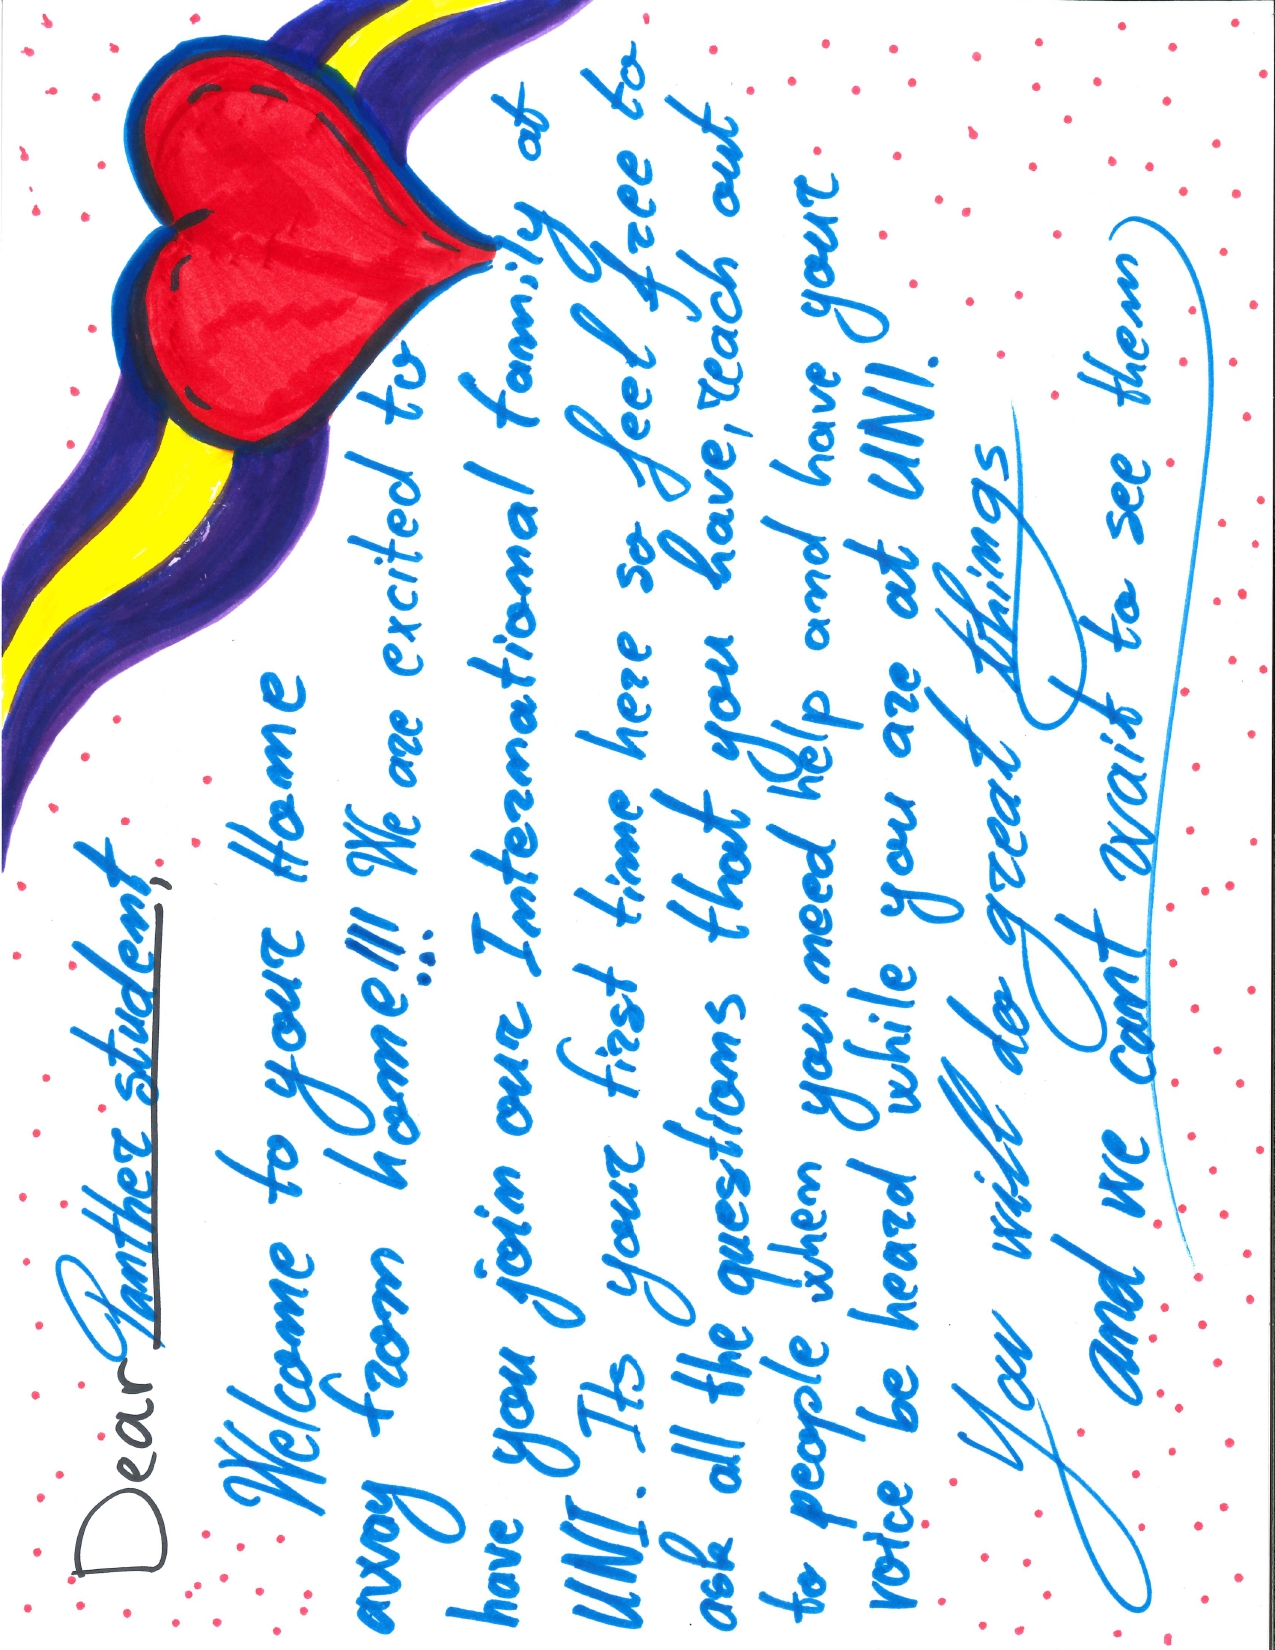 Dear Panther student,
Welcome to your Home
away from home!!! We are excited to
have you join our International family at
UNI. Its your first time here so feel free to
ask all the questions that you have, reach out
to people when you need help and have your
voice be heard while you are at UNI.
You will do great things
and we cant wait to see them